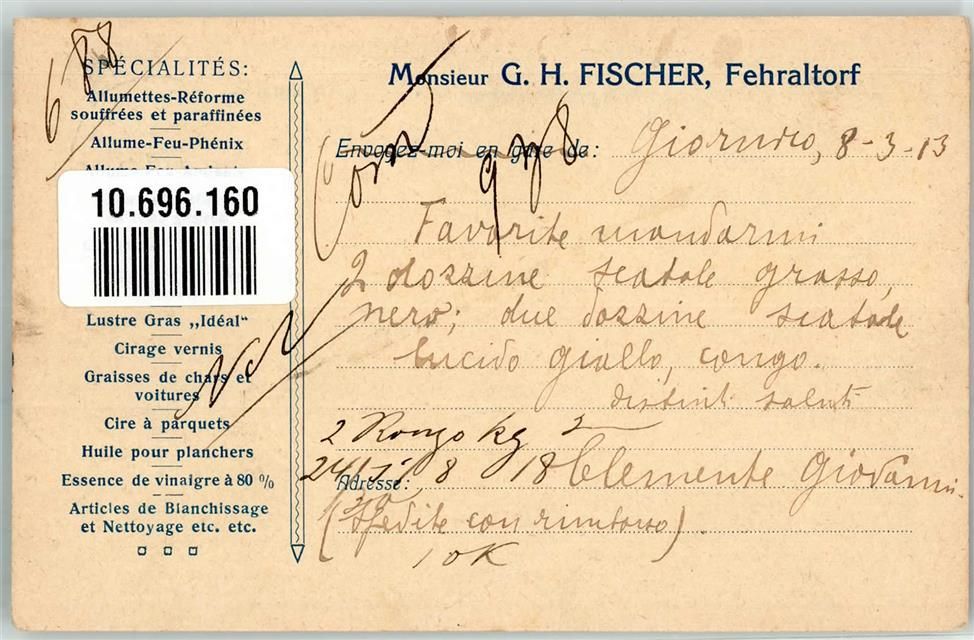 688
SPÉCIALITÉS:
Allumettes-Réforme
souffrées et paraffinées
Allume-Feu-Phénix
10.696.160
Lustre Gras „Idéal“
Cirage vernis
Graisses de chars et
voitures
Cire à parquets
Huile pour planchers
Essence de vinaigre à 80 %
Articles de Blanchissage
et Nettoyage etc. etc.
Monsieur G. H. FISCHER, Fehraltorf
Envoyez-moi en gare de: Giornico, 8-3-13
Favorite mandarmi
2 dozzine scatole grasso,
nero; due dozzine scatole
lucido giallo, congo.
distinti saluti
2 Kongo kg 2
Adresse: Clemente Giovanni
(spedite con rimborso)